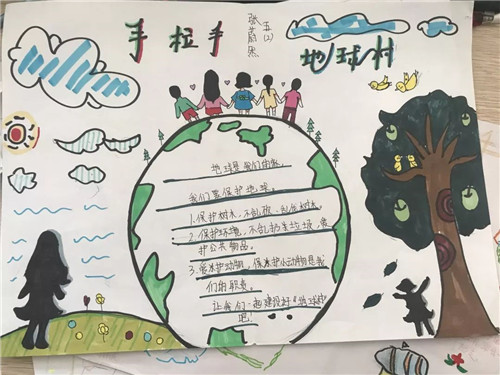 手拉手
五(2)
张蔚然
地球村
地球是我们的家。
我们要保护地球。
1.保护树木,不乱砍、乱伐树木。
2.保护环境,不乱扔垃圾,爱
护公共物品。
3.爱护动物,保护小动物是我
们的职责。
让我们一起建设好“地球村”
吧!